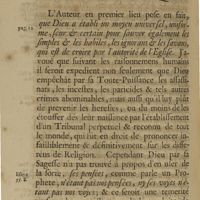 L'Auteur en premier lieu pose en fait,
que Dieu a établi un moyen universel, unifor-
me, seur & certain pour sauver également les
simples & les habiles, les ignorans & les sçavans,
qui est de croire par l'autorité de l'Eglise. J'a-
voue que suivant les raisonnemens humains
il seroit expedient non seulement que Dieu
empêchât par sa Toute-Puissance les assassi-
nats, les incestes, les parricides & tels autres
crimes abominables, mais aussi qu'il lui plût
de prevenir les heresies, ou du moins de les
étouffer dés leur naissance par l'établissement
d'un Tribunal perpetuel & reconnu de tout
le monde, qui fut en droit de prononcer in-
failliblement & définitivement sur les diffe-
rens de Religion. Cependant Dieu par sa
Sagesse n'a pas trouvé à propos d'en user de
la sorte, ses pensées, comme parle un Pro-
phete, n'étant pas nos pensées, ny ses voyes n'é-
tant pas nos voyes; & ce seroit une temerité